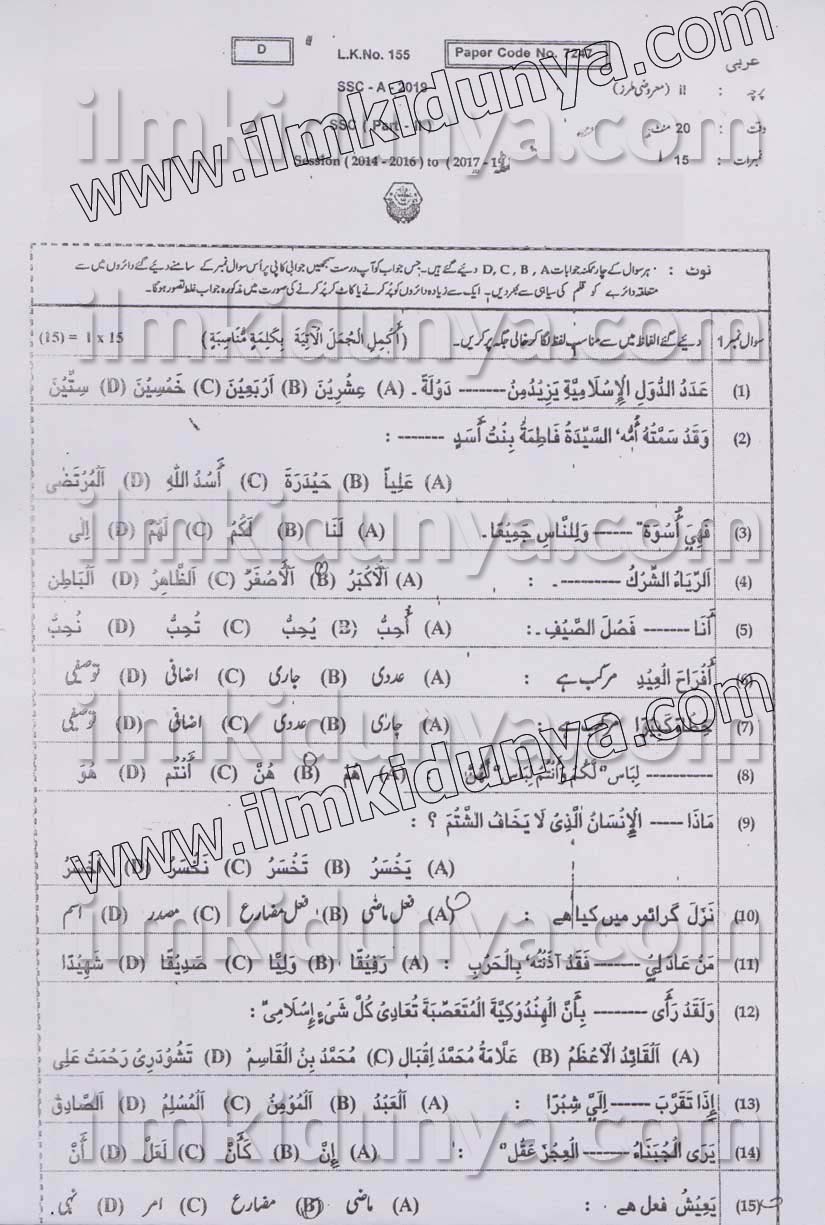 D
L.K.No. 155
Paper Code No. 7247
عربی
SSC - A - 2019
پرچہ : II (معروضی طرز)
SSC ( Part - II )
وقت : 20 منٹ
Session ( 2014 - 2016 ) to ( 2017 - 19 )
نمبرات : 15
نوٹ : ہر سوال کے چار ممکنہ جوابات D, C, B, A دیئے گئے ہیں۔ جس جواب کو آپ درست سمجھیں جوابی کاپی پر اُس سوال نمبر کے سامنے دیئے گئے دائروں میں سے
متعلقہ دائرے کو قلم کی سیاہی سے بھر دیں۔ ایک سے زیادہ دائروں کو پُر کرنے یا کاٹ کر پُر کرنے کی صورت میں مذکورہ جواب غلط تصور ہوگا۔
سوال نمبر 1 دیئے گئے الفاظ میں سے مناسب لفظ لگا کر خالی جگہ پر کریں۔ (أَكْمِلِ الْجُمَلَ الْآتِيَةَ بِكَلِمَةٍ مُنَاسِبَةٍ) (15) = 1 x 15
(1) عَدَدُ الدُّوَلِ الْإِسْلَامِيَّةِ يَزِيْدُ مِنْ ------- دَوْلَةً۔ (A) عِشْرِيْنَ (B) اَرْبَعِيْنَ (C) خَمْسِيْنَ (D) سِتِّيْنَ
(2) وَقَدْ سَمَّتْهُ أُمُّه، السَّيِّدَةُ فَاطِمَةُ بِنْتُ أَسَدٍ ------- :
(A) عَلِياً (B) حَيْدَرَةَ (C) أَسَدُ اللهِ (D) اَلْمُرْتَضٰى
(3) فَهِيَ أُسْوَة" ------ وَلِلنَّاسِ جَمِيْعًا۔ (A) لَنَا (B) لَكُمْ (C) لَهُمْ (D) اِلٰى
(4) اَلرِّيَاءُ الشِّرْكُ --------- : (A) اَلْاَكْبَرُ (B) اَلْاَصْغَرُ (C) اَلظَّاهِرُ (D) اَلْبَاطِن
(5) أَنَا ------- فَصْلَ الصَّيْفِ ۔: (A) أُحِبُّ (B) يُحِبُّ (C) تُحِبُّ (D) نُحِبُّ
(6) أَفْرَاحُ الْعِيْدِ مرکب ہے : (A) عددی (B) جاری (C) اضافی (D) توصیفی
(7) مرکب ہے : (A) جاری (B) عددی (C) اضافی (D) توصیفی
(8) --------- لِبَاس" لَّكُمْ وَأَنْتُمْ لِبَاس" لَّهُنَّ : (A) هُمْ (B) هُنَّ (C) أَنْتُمْ (D) هُوَ
(9) مَاذَا ----- الْإِنْسَانُ الَّذِيْ لَا يَخَافُ الشَّتْمَ ؟ :
(A) يَخْسَرُ (B) تَخْسَرُ (C) نَخْسَرُ (D) اَخْسَرُ
(10) نَزَلَ گرائمر میں کیا ہے : (A) فعل ماضی (B) فعل مضارع (C) مصدر (D) اسم
(11) مَنْ عَادَ لِيْ ------- فَقَدْ آذَنْتُه، بِالْحَرْبِ : (A) رَفِيْقًا (B) وَلِيًّا (C) صَدِيْقًا (D) شَهِيْدًا
(12) وَلَقَدْ رَأَى --------- بِأَنَّ الْهِنْدُوكِيَّةَ الْمُتَعَصِّبَةَ تُعَادِيْ كُلَّ شَيْءٍ إِسْلَامِيٍّ :
(A) اَلْقَائِدُ الْاَعْظَمُ (B) عَلَّامَةُ مُحَمَّدْ اِقْبَال (C) مُحَمَّدْ بِنُ الْقَاسِمُ (D) تَشُوْدَرِيْ رَحْمَتْ عَلِى
(13) إِذَا تَقَرَّبَ ------ إِلَيَّ شِبْرًا : (A) اَلْعَبْدُ (B) اَلْمُؤْمِنُ (C) اَلْمُسْلِمُ (D) اَلصَّادِقُ
(14) يَرَى الْجُبَنَاءُ ------- الْعِجْزَ عَقْل" : (A) إِنَّ (B) كَأَنَّ (C) لَعَلَّ (D) أَنَّ
(15) يَعِيْشُ فعل ہے : (A) ماضی (B) مضارع (C) امر (D) نہی
www.ilmkidunya.com
www.ilmkidunya.com
ilmkidunya.com
ilmkidunya.com
ilmkidunya.com
ilmkidunya.com
ilmkidunya.com
ilmkidunya.com
ilmkidunya.com